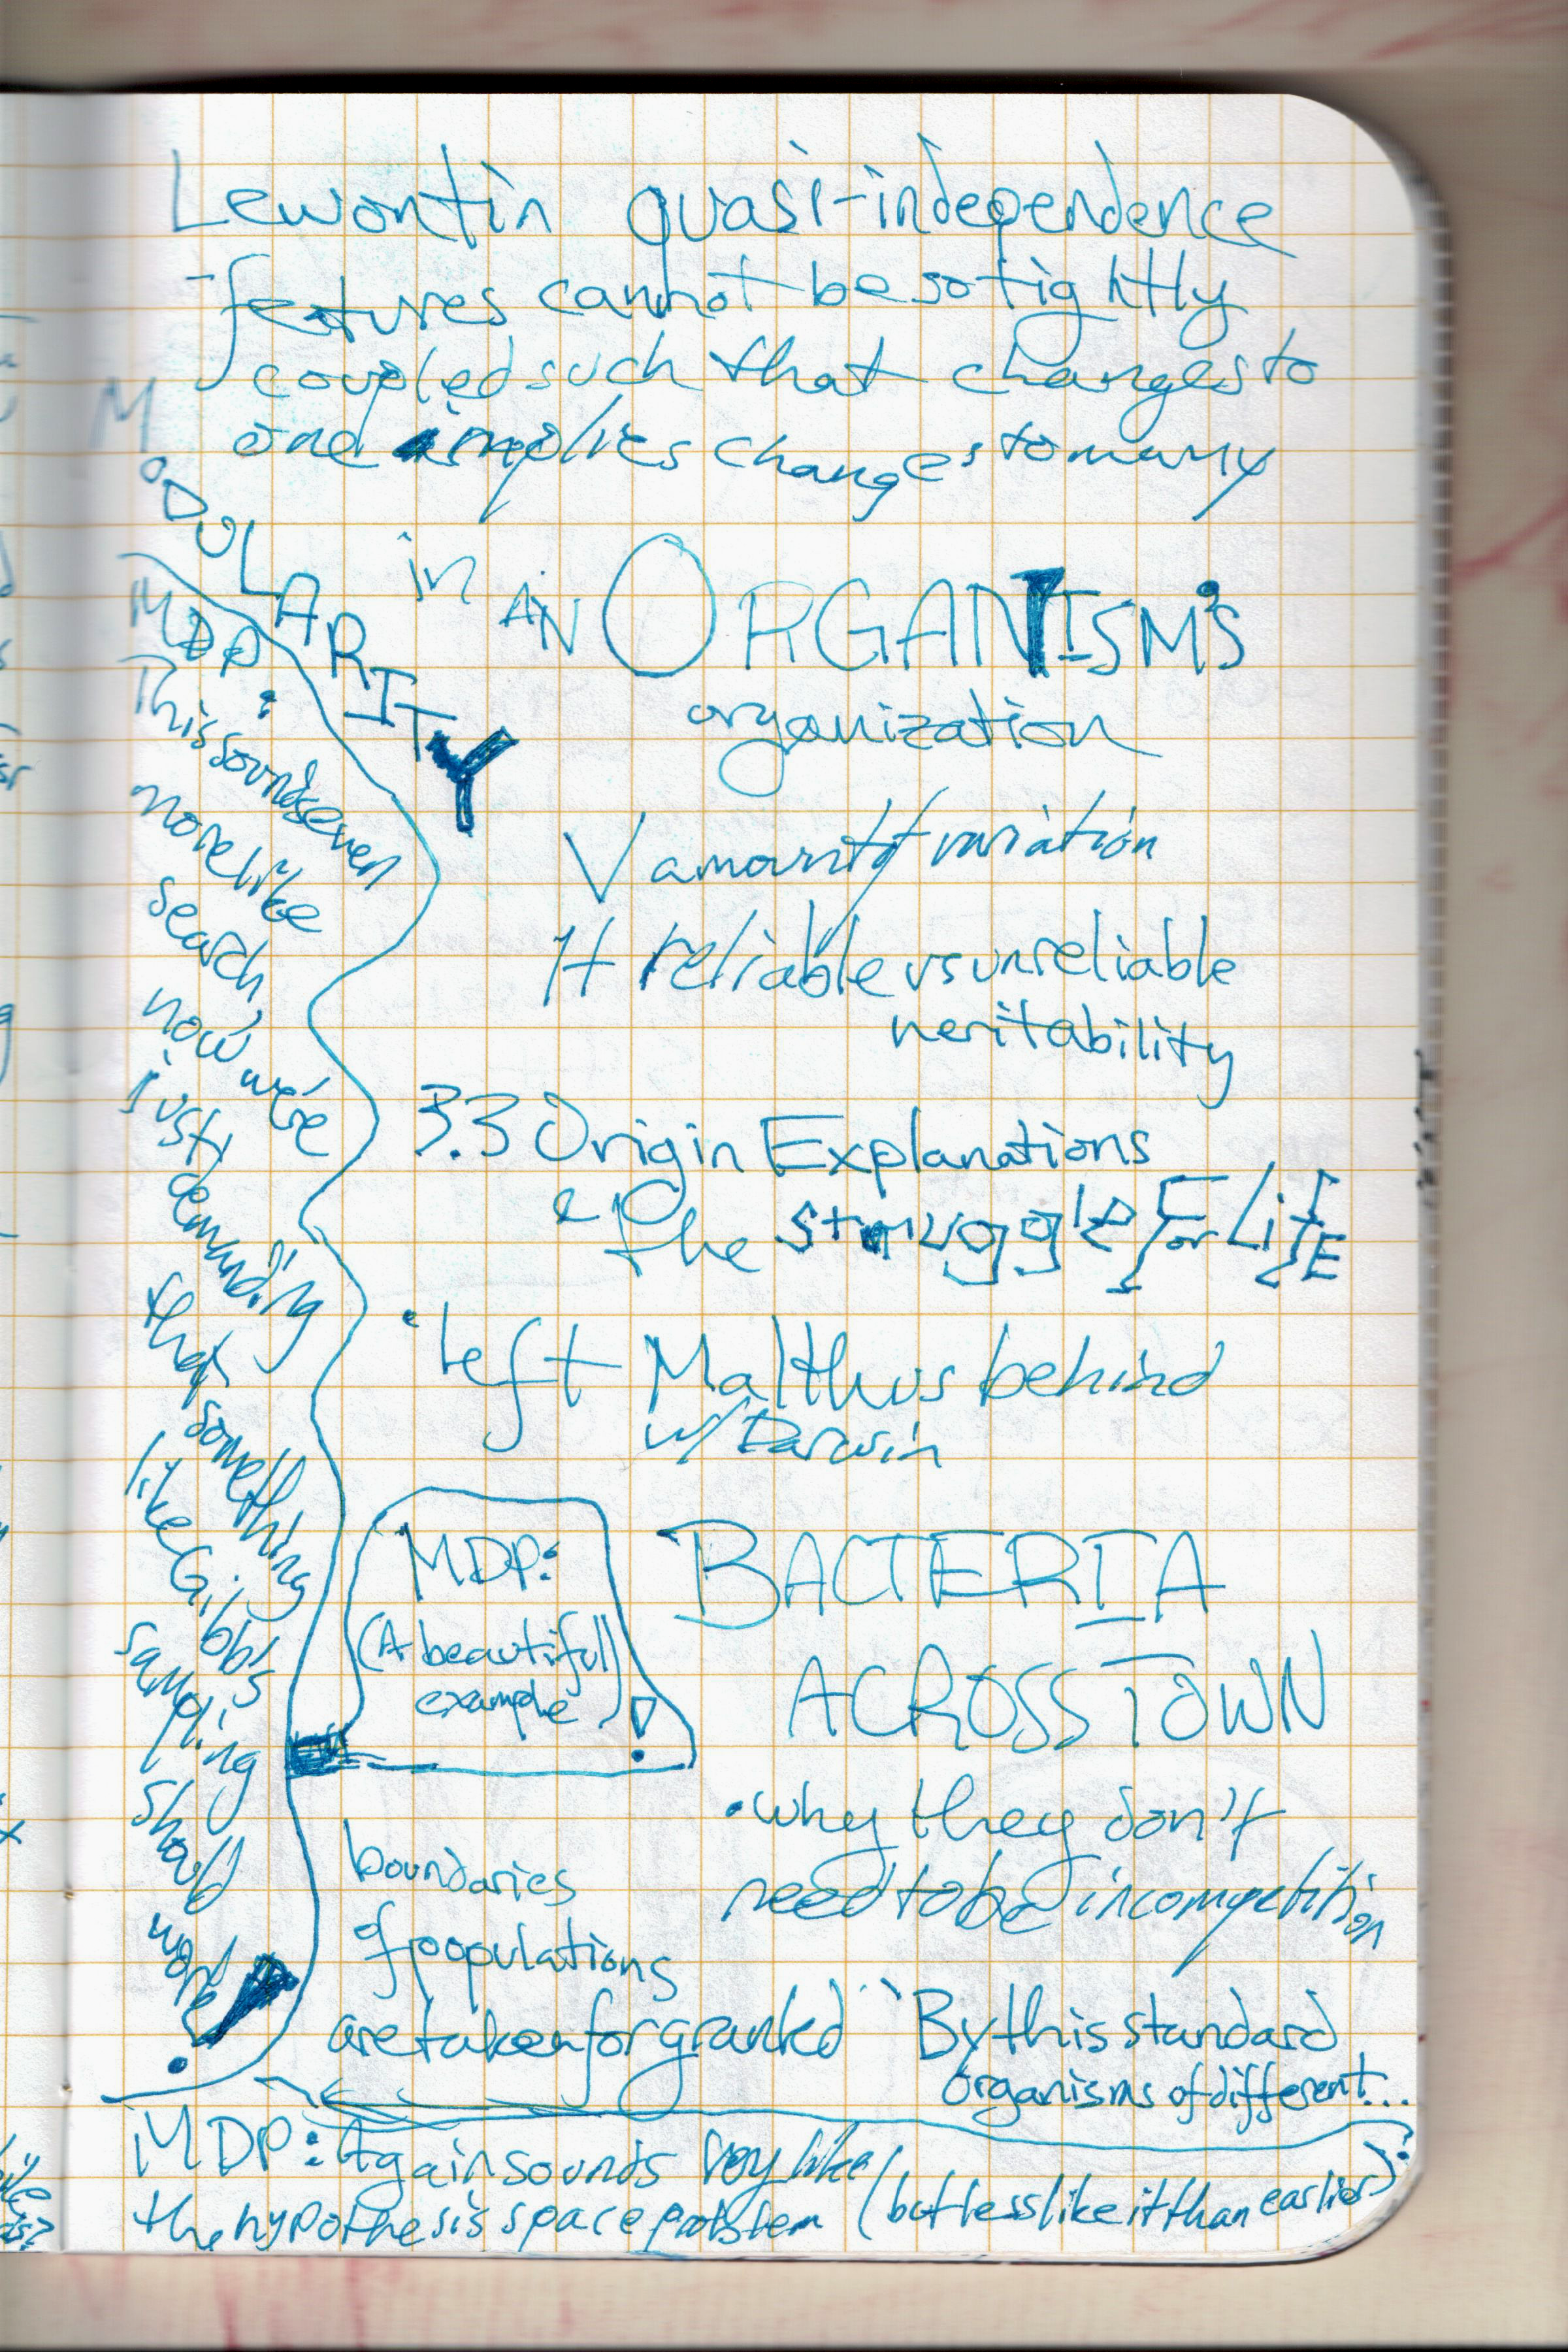 Lewontin quasi-independence
-features cannot be so tightly
coupled such that changes to
one implies changes to many
MODULARITY in AN ORGANISM'S
organization
V amount of variation
H reliable vs unreliable
heritability
3.3 Origin Explanations
& the struggle for LifE
• left Malthus behind
w/ Darwin
MDP:
This sounds even
more like
search,
now we're
just
demanding
that
something
like Gibbs
sampling
should
work!
MDP:
(A beautiful)
example !
BACTERIA
ACROSS TOWN
• why they don't
need to be in competition
boundaries
of populations
are taken for granted
"By this standard
organisms of different...
MDP: Again sounds very like
the hypothesis space problem (but less like it than earlier)?